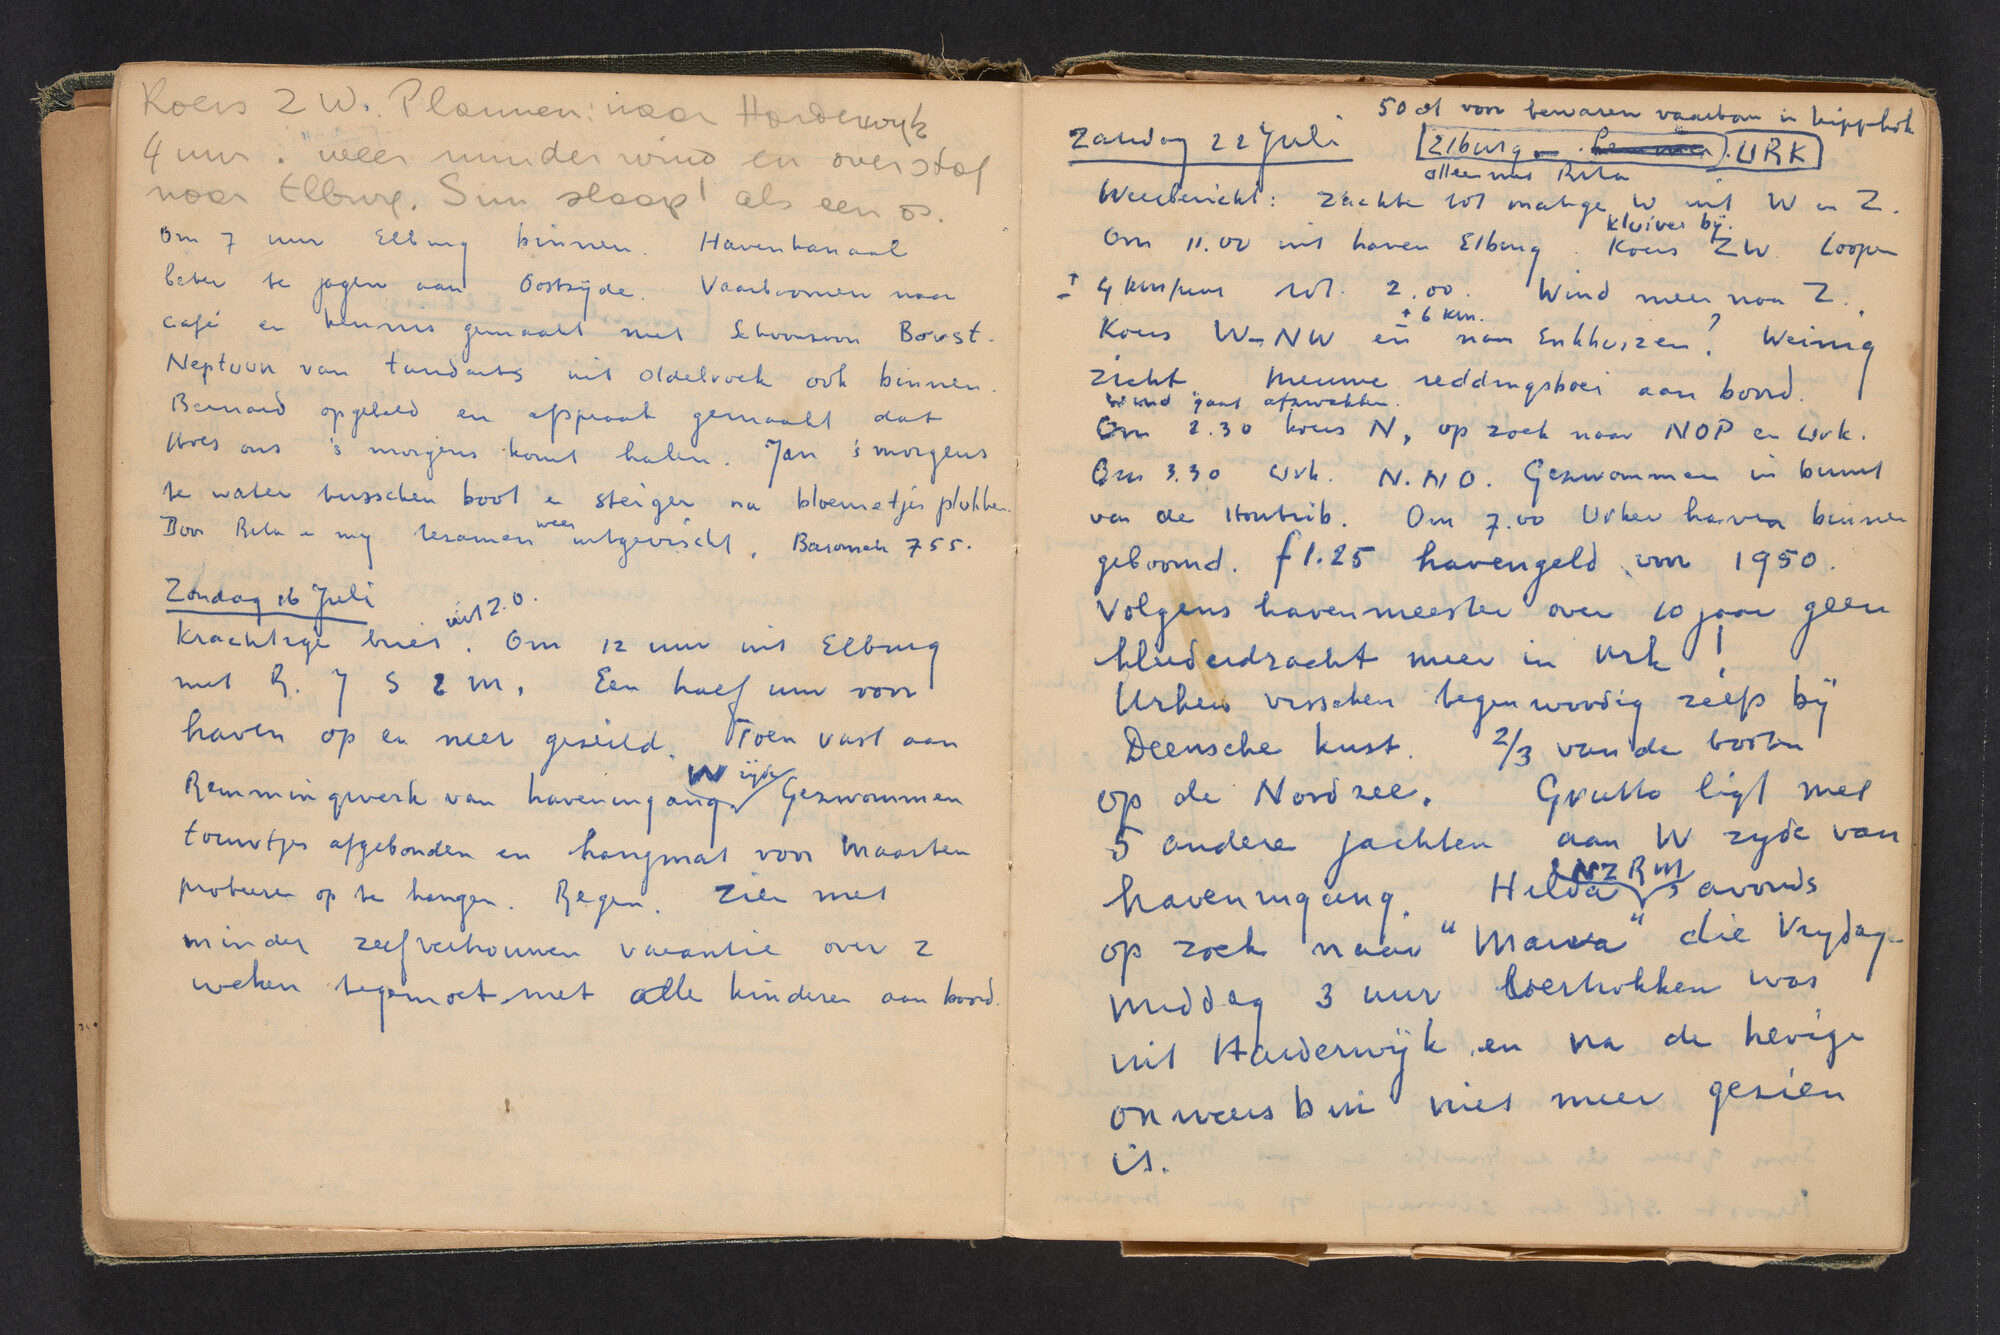 Koers ZW. Plannen: naar Harderwyk
4 uur. weer minder wind en overstag
naar Elburg. Sim slaapt als een os.
Om 7 uur Elburg binnen. Havenkanaal
beter te jagen aan Oostzyde. Vaarboomen naar
café en kennis gemaakt met Schoonzoon Borst.
Neptuun van tandarts uit Oldebroek ook binnen.
Bernard opgebeld en afspraak gemaakt dat
Hoes ons 's morgens komt halen. Jan 's morgens
te water tusschen boot en steiger na bloemetjes plukken.
Door Rita en my tesamen weer uitgevischt. Barometer 755.
Zondag 16 Juli
Krachtige bries uit Z.O. Om 12 uur uit Elburg
met R. J S 2 M. Een half uur voor
haven op en neer gezeild. Toen vast aan
Remmingwerk van haveningang W zyde Gezwommen
touwtjes afgebonden en hangmat voor Maarten
probeeren op te hangen. Regen. Zien met
minder zelfvertrouwen vacantie over 2
weken tegemoet met alle kinderen aan boord.
50 ct voor bewaren vaarboom in kippehok
Zaterdag 22 Juli
Elburg - URK
alleen met Rita
Weerbericht: zachte tot matige W uit W en Z.
kluiver bij.
Om 11.00 uit haven Elburg. Koers ZW. Loopen
± 4 km/uur tot 2.00. Wind meer naar Z.
± 6 km.
Koers W-NW en naar Enkhuizen? Weinig
zicht. Nieuwe reddingsboei aan boord.
wind gaat afzwakken.
Om 2.30 koers N, op zoek naar NOP en Urk.
Om 3.30 Urk. N.NO. Gezwommen in buurt
van de Houtrib. Om 7.00 Urker haven binnen
geboomd. f 1.25 havengeld voor 1950.
Volgens havenmeester over 10 jaar geen
kleederdracht meer in Urk!
Urkers visschen tegenwoordig zelfs bij
Deensche kust. 2/3 van de booten
op de Nordzee. Grutto ligt met
5 andere jachten aan W zyde van
haveningang. Hilda NZRM 's avonds
op zoek naar "Marva" die Vrydag-
middag 3 uur vertrokken was
uit Harderwijk en na de hevige
onweersbui niet meer gezien
is.